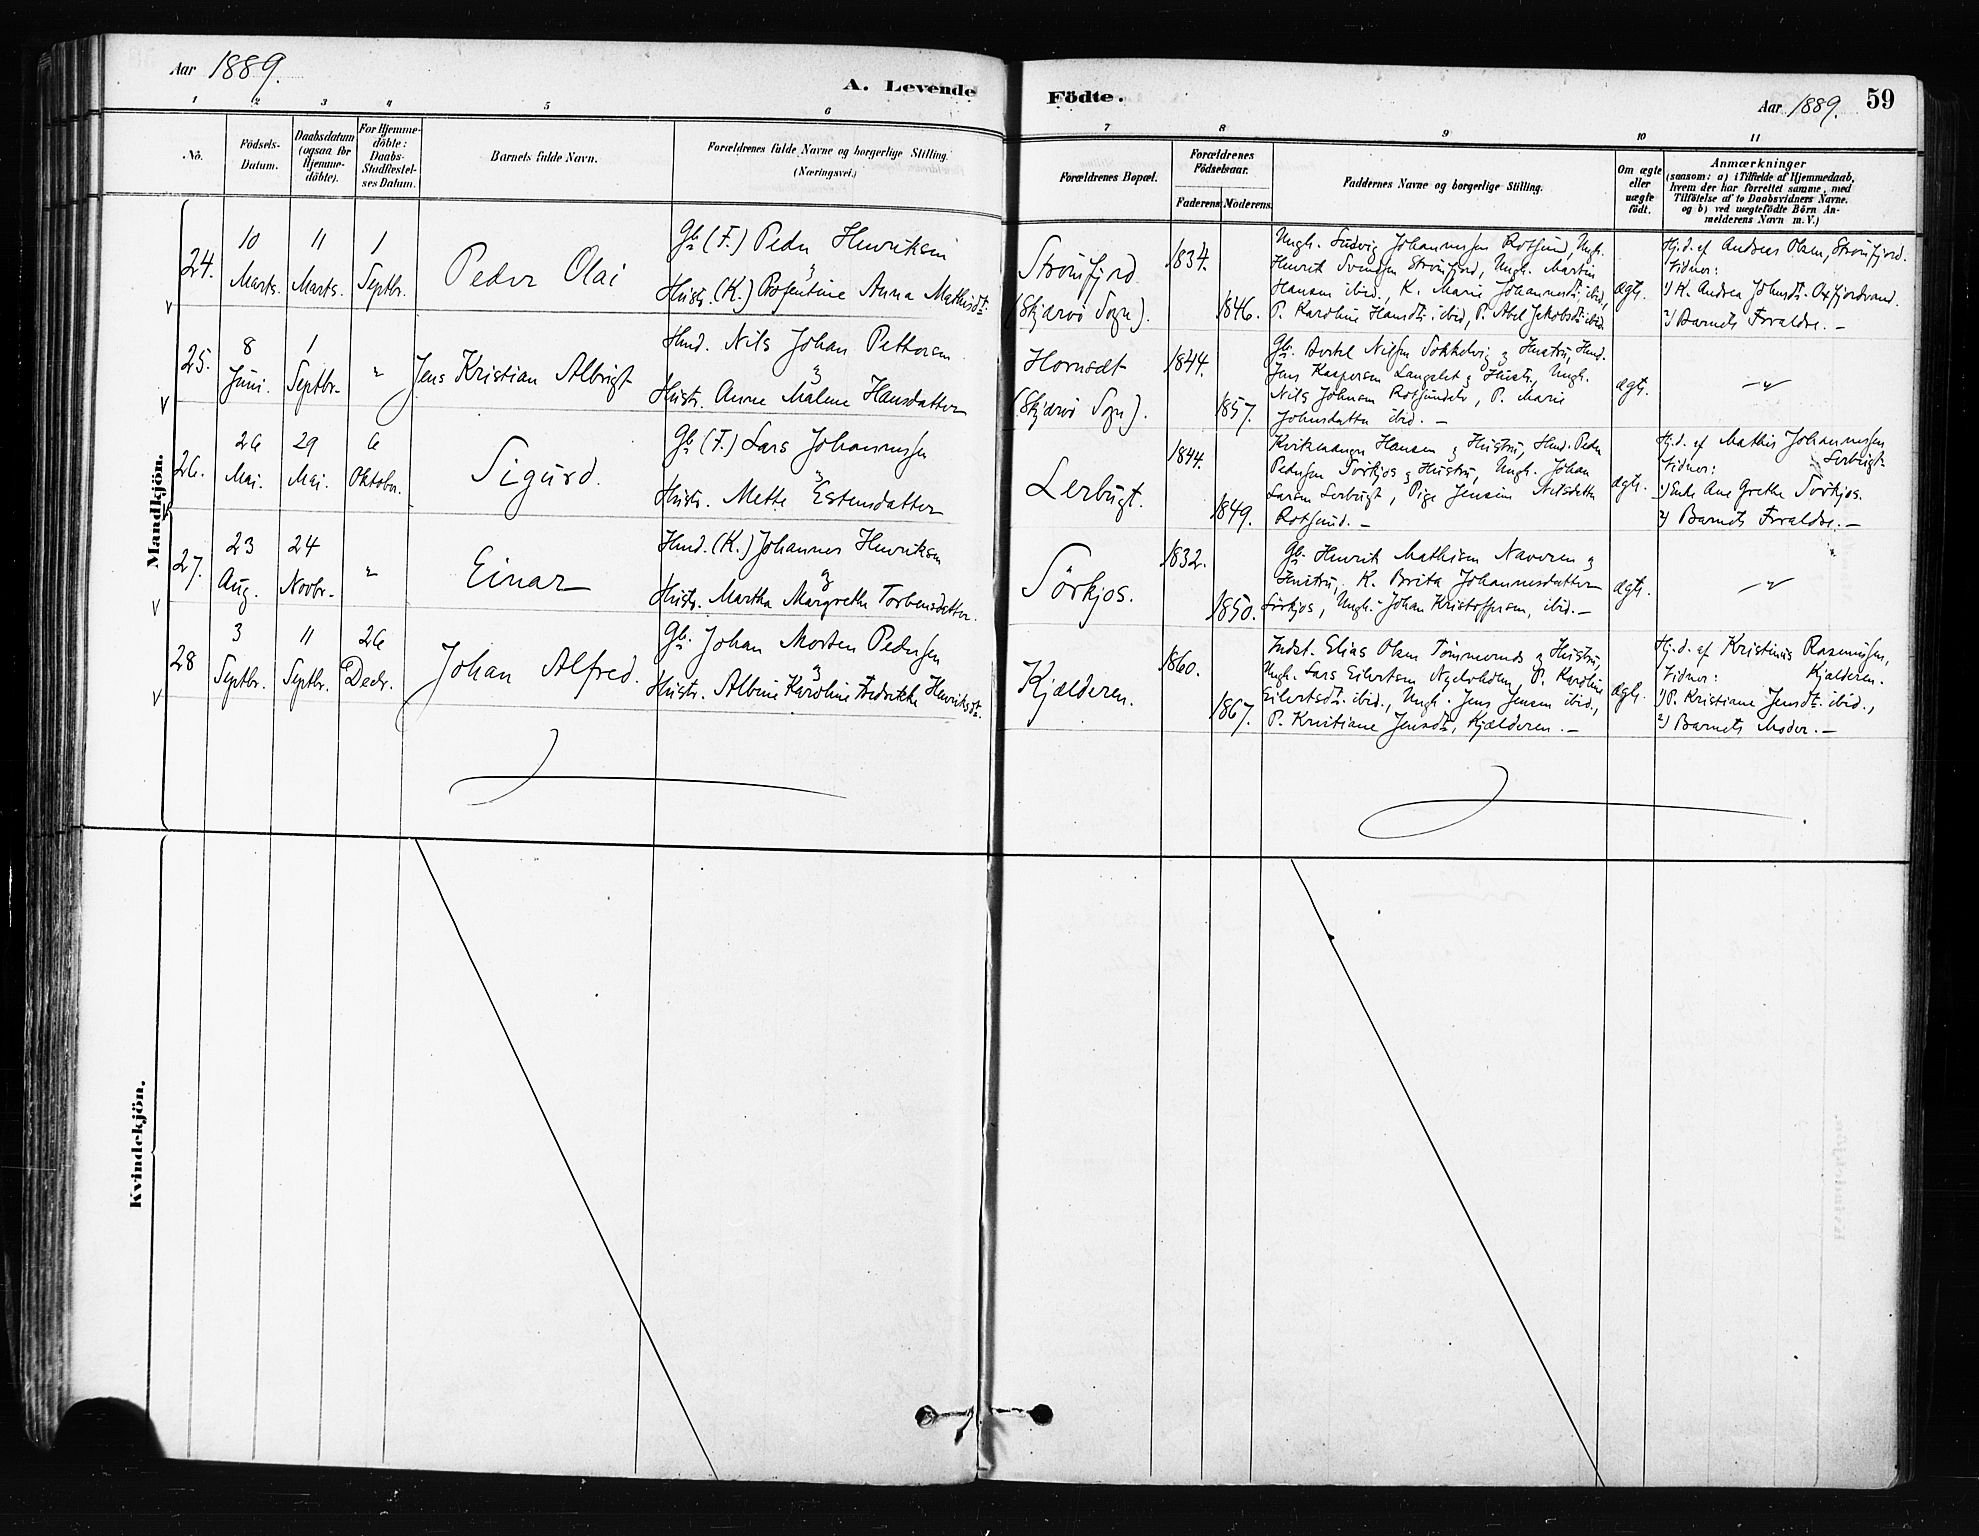 Aar 1889.
A. Levende
Födte.
Aar 1889. 59
1 2 3 4 5 6
7 8 9 10 11
No.
Födsels-
Datum.
Daabsdatum
(ogsaa for
Hjemme-
döbte).
For Hjemme-
döbte:
Daabs-
Stadfæstel-
ses Datum.
Barnets fulde Navn.
Forældrenes fulde Navne og borgerlige Stilling.
(Næringsvei.)
Forældrenes Bopæl.
Forældrenes
Födselsaar.
Faderens. Moderens.
Faddernes Navne og borgerlige Stilling.
Om ægte
eller
uægte
födt.
Anmærkninger
(saasom: a) i Tilfælde af Hjemmedaab,
hvem der har forrettet samme, med
Tilföielse af to Daabsvidners Navne.
og b) ved uægtefödte Börn An-
melderens Navn m. V.)
Mandkjön.
24.
10
Marts.
11
Marts.
1
Septbr.
Peder Olai
Gb. (F.) Peder Henriksen
og
Hustr. (K.) Anna Mathisdt.
Strømfjord
(Skjærvø Sogn).
1834.
1846.
Ungk. Ludvig Johannessen Rotsund, Ungk.
Henrik Svendsen Strømfjord, Ungk. Martin
Hansen ibid., K. Marie Johannesdt. ibid,
P. Karoline Hansdt. ibid, P. Abel Jakobsdt. ibid.
ægte.
Hj.d. af Andreas Olsen, Strømfjord.
Vidner:
1) K. Andrea Johnsdt. Oxfjordvand.
2) Barnets Forældre. —
25.
8
Juni.
1
Septbr.
"
Jens Kristian Albrigt
Hmd. Nils Johan Pettersen
og
Hustr. Anne Malene Hansdatter
Hornset
(Skjærvø Sogn).
1844.
1857.
Gb. Bertel Nilsen Sokkelvig og Hustru, Hmd.
Jens Kaspersen Langslet og Hustr., Ungk.
Nils Johnsen Rotsundelv, P. Marie
Johnsdatter ibid. —
ægte.
— " —
26.
26
Mai.
29
Mai.
6
Oktober.
Sigurd.
Gb. (F.) Lars Johannessen
og
Hustr. Mette Estensdatter
Lerbugt.
1844.
1849.
Hansen og Hustru, Hmd. Peder
Pedersen Sørkjos og Hustru, Ungk. Johan
Larsen Lerbugt, Pige Jensine Nilsdatter
Rotsund. —
ægte.
Hj.d. af Mathis Johannessen
Lerbugt
Vidner:
1) Enke Ane Grethe Sørkjos.
2) Barnets Forældre. —
27.
23
Aug.
24
Novbr.
"
Einar
Hmd. (K.) Johannes Henriksen
og
Hustr. Martha Margrethe Torbensdatter.
Sørkjos.
1832.
1850.
Gb. Henrik Mathisen Naveren og
Hustru, K. Brita Johannesdatter
Sørkjos, Ungk. Johan Kristoffersen, ibid. —
ægte.
— " —
28
3
Septbr.
11
Septbr.
26
Decbr.
Johan Alfred.
Gb. Johan Morten Pedersen
og
Hustr. Albine Karoline Fredrikke Henriksdt.
Kjælderen.
1860.
1867.
Indst. Elias Olsen Tømmernes og Hustru,
Ungk. Lars Eilertsen Nyelvholm, P. Karoline
Eilertsdt. ibid., Ungk. Jens Jensen ibid.,
P. Kristiane Jensdt., Kjælderen. —
ægte.
Hj.d. af Kristinus Rasmussen,
Kjælderen.
Vidner:
1) P. Kristiane Jensdt. ibid.,
2) Barnets Moder. —
Kvindekjön.